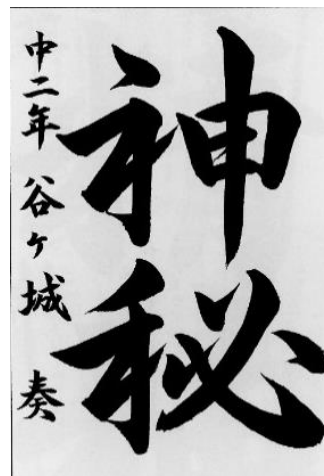 神秘
中二年 谷ヶ城 奏